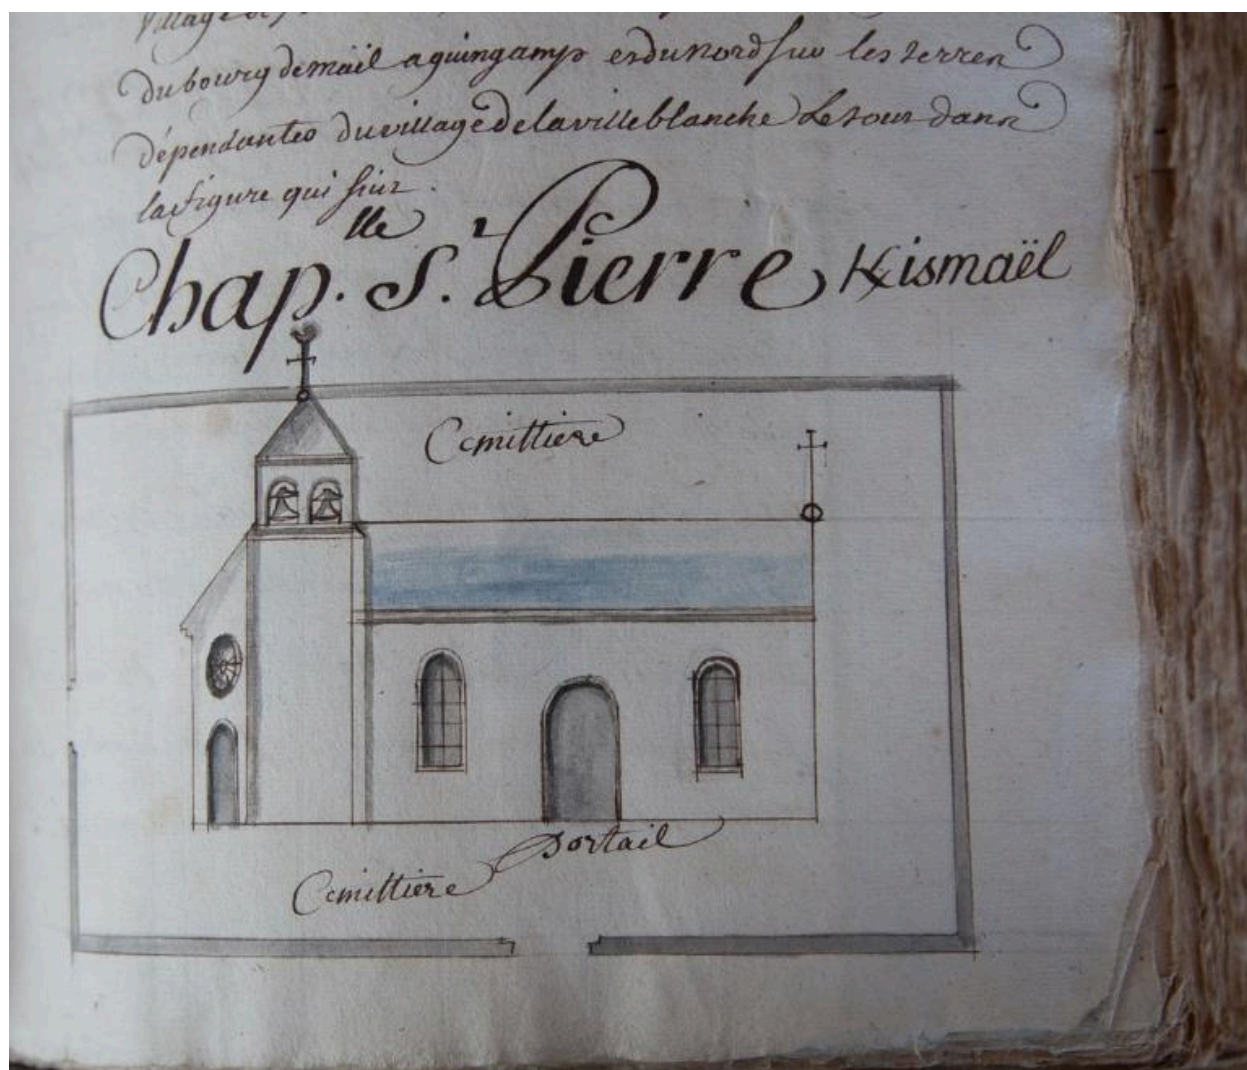 village de
du bourg de maël a guingamp et du nord sur les terres
dépendantes du village de la villeblanche Le tout dans
la figure qui suit.
Chap.lle St. Pierre Kismaël
Cemittiere
Portail
Cemittiere